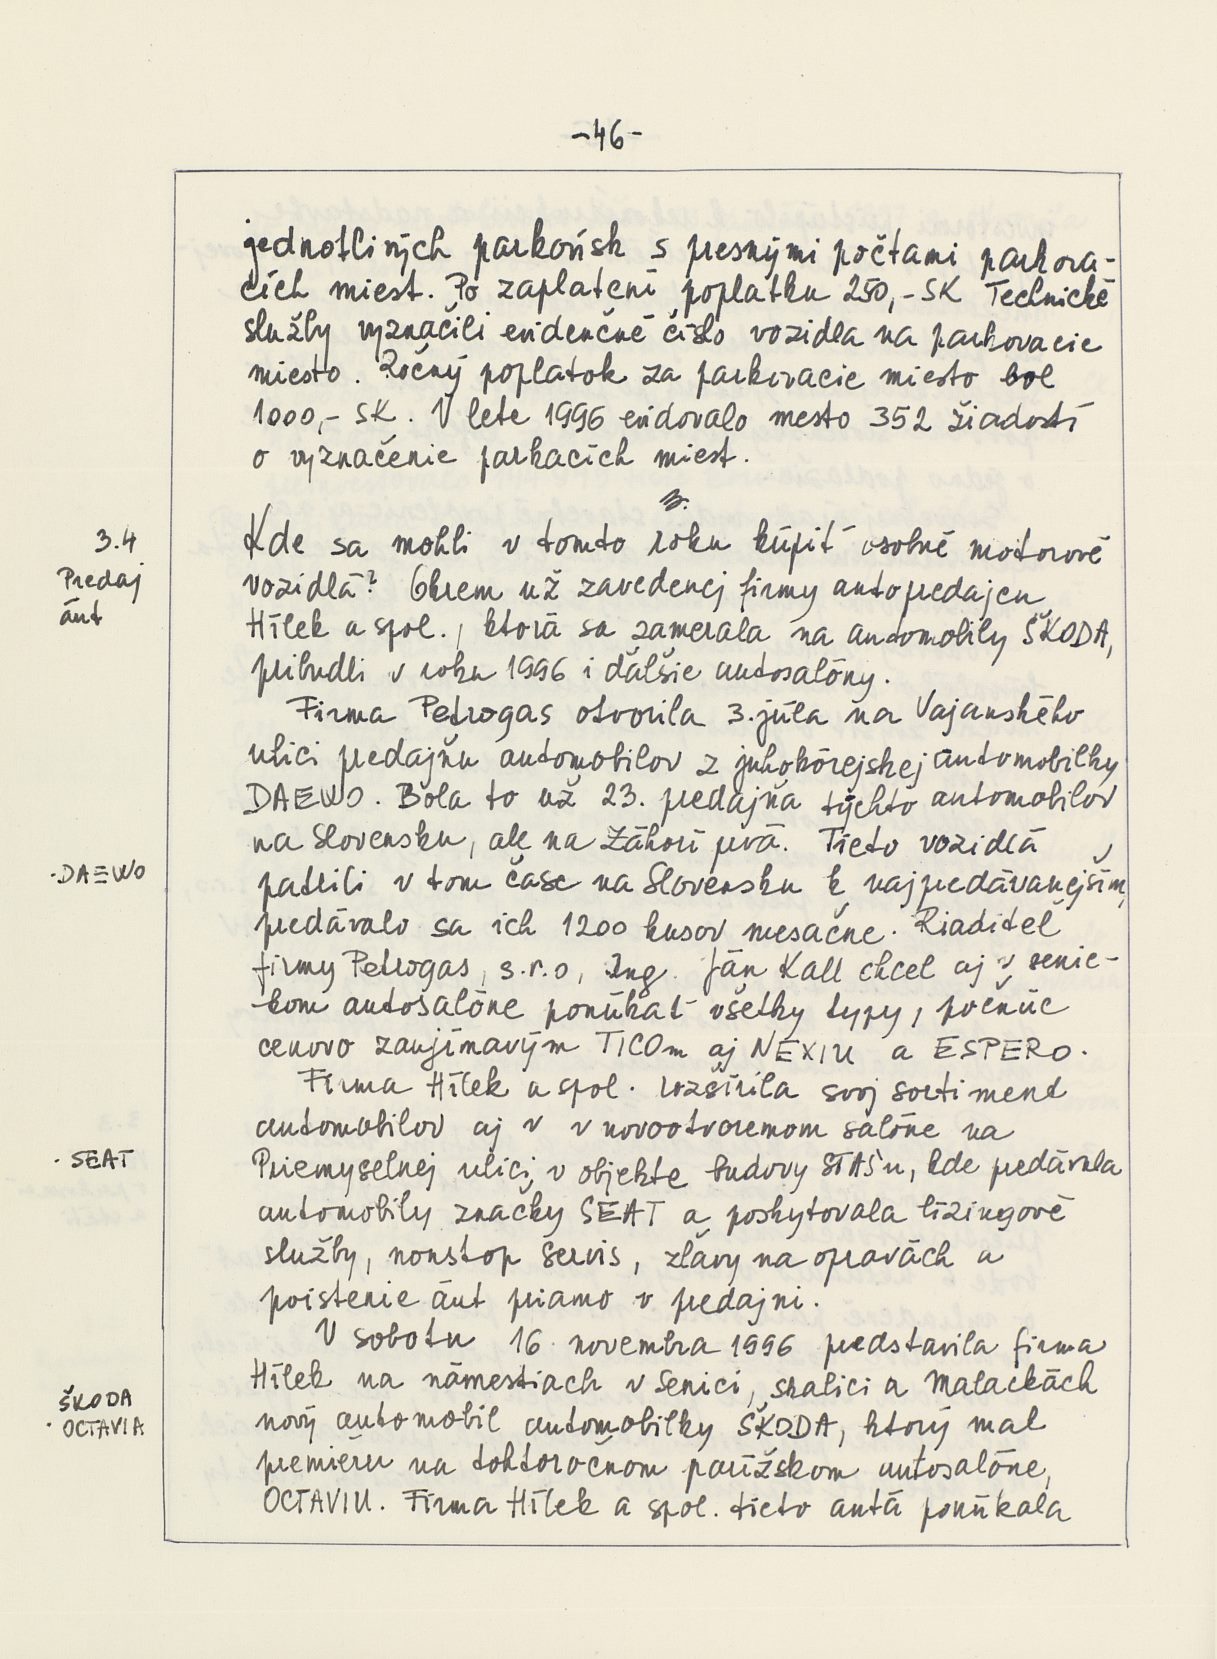 -46-
jednotlivých parkovísk s presnými počtami parkova-
cích miest. Po zaplatení poplatku 250,- SK Technické
služby vyznačili evidenčné číslo vozidla na parkovacie
miesto. Ročný poplatok za parkovacie miesto bol
1000,- SK. V lete 1996 evidovalo mesto 352 žiadostí
o vyznačenie parkacích miest.
3.4
Predaj
áut
Kde sa mohli v tomto roku kúpiť osobné motorové
vozidlá? Okrem už zavedenej firmy autopredajcu
Hílek a spol., ktorá sa zamerala na automobily ŠKODA,
pribudli v roku 1996 i ďalšie autosalóny.
Firma Petrogas otvorila 3. júla na Vajanského
ulici predajňu automobilov z juhokórejskej automobilky
DAEWO. Bola to už 23. predajňa týchto automobilov
na Slovensku, ale na Záhorí prvá. Tieto vozidlá
· DAEWO
patrili v tom čase na Slovensku k najpredávanejším,
predávalo sa ich 1200 kusov mesačne. Riaditeľ
firmy Petrogas, s.r.o, Ing. Ján Kall chcel aj v senic-
kom autosalóne ponúkať všetky typy, počnúc
cenovo zaujímavým TICOm aj NEXIU a ESPERO.
Firma Hílek a spol. rozšírila svoj sortiment
automobilov aj v v novootvoremom salóne na
· SEAT
Priemyselnej ulici, v objekte budovy STAŠu, kde predávala
automobily značky SEAT a poskytovala lízingové
služby, nonstop servis, zľavy na opravách a
poistenie áut priamo v predajni.
V sobotu 16 novembra 1996 predstavila firma
Hílek na námestiach v Senici, Skalici a Malackách
ŠKODA
· OCTAVIA
nový automobil automobilky ŠKODA, ktorý mal
premiéru na tohtoročnom parížskom autosalóne,
OCTAVIU. Firma Hílek a spol. tieto autá ponúkala